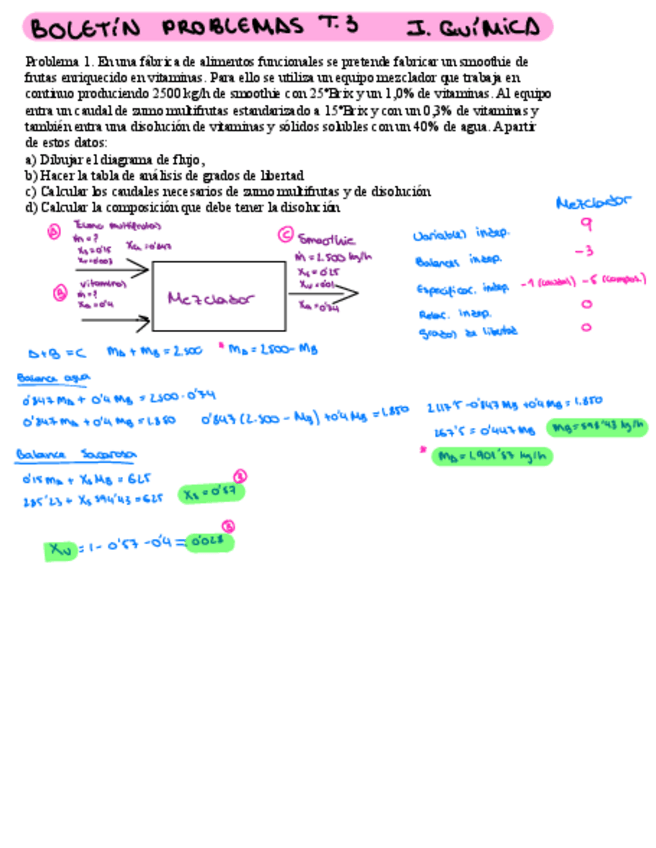 BOLETÍN PROBLEMAS T.3 I. QUÍMICA
Problema 1. En una fábrica de alimentos funcionales se pretende fabricar un smoothie de
frutas enriquecido en vitaminas. Para ello se utiliza un equipo mezclador que trabaja en
continuo produciendo 2500 kg/h de smoothie con 25ºBrix y un 1,0% de vitaminas. Al equipo
entra un caudal de zumo multifrutas estandarizado a 15ºBrix y con un 0,3% de vitaminas y
también entra una disolución de vitaminas y sólidos solubles con un 40% de agua. A partir
de estos datos:
a) Dibujar el diagrama de flujo,
b) Hacer la tabla de análisis de grados de libertad
c) Calcular los caudales necesarios de zumo multifrutas y de disolución
d) Calcular la composición que debe tener la disolución
Mezclador
A Zumo multifrutas
ṁ = ?
Xs = 0'15 Xa = 0'847
Xv = 0'003
B vitaminas
ṁ = ?
Xa = 0'4
Mezclador
C Smoothie
ṁ = 2.500 kg/h
Xs = 0'25
Xv = 0'01
Xa = 0'74
Variables indep. 9
Balances indep. -3
Especificac. indep -1 (caudal) -5 (compos.)
Relac. indep. 0
Grados de libertad 0
A + B = C mA + mB = 2.500 * mA = 2.500 - mB
Balance agua
0'847 mA + 0'4 mB = 2.500 · 0'74
0'847 mA + 0'4 mB = 1.850 0'847 (2.500 - mB) + 0'4 mB = 1.850
2117'5 - 0'847 mB + 0'4 mB = 1.850
267'5 = 0'447 mB mB = 598'43 kg/h
* mA = 1.901'57 kg/h
Balance Sacarosa
0'15 mA + Xs mB = 625
285'23 + Xs 594'43 = 625 Xs = 0'57 B
Xv = 1 - 0'57 - 0'4 = 0'028 B